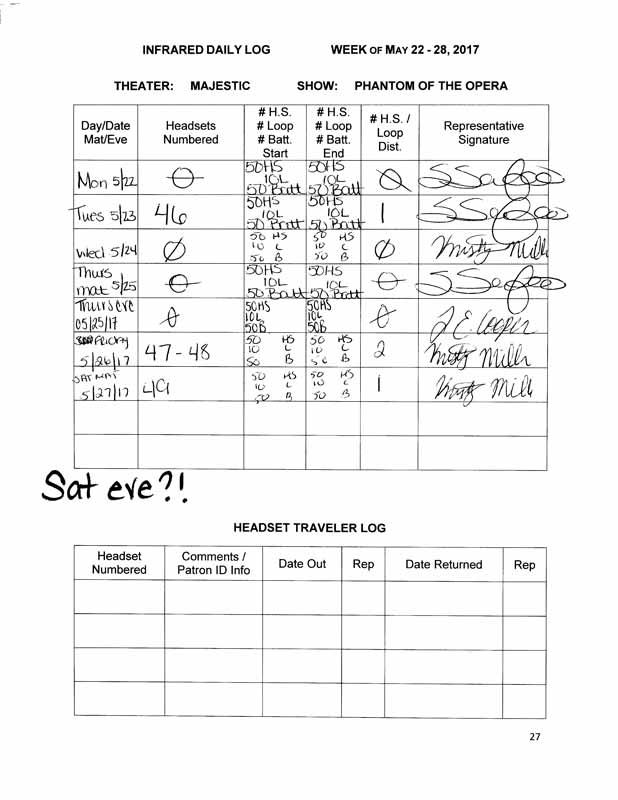 INFRARED DAILY LOG WEEK OF MAY 22 - 28, 2017
THEATER: MAJESTIC SHOW: PHANTOM OF THE OPERA
Day/Date Mat/Eve Headsets Numbered # H.S. # Loop # Batt. Start # H.S. # Loop # Batt. End # H.S. / Loop Dist. Representative Signature
Mon 5/22 0 50HS 10L 50 Batt 50HS 10L 50 Batt 0
Tues 5/23 46 50HS 10L 50 Batt 50HS 10L 50 Batt 1
Wed 5/24 Ø 50 HS 10 L 50 B 50 HS 10 L 50 B Ø Misty Mills
Thurs mat 5/25 0 50HS 10L 50 Batt 50HS 10L 50 Batt 0
Thurs eve 05/25/17 0 50HS 10L 50B 50HS 10L 50B 0 J E. Cooper
Friday 5/26/17 47 - 48 50 HS 10 L 50 B 50 HS 10 L 50 B 2 Misty Mills
SAT MAT 5/27/17 49 50 HS 10 L 50 B 50 HS 10 L 50 B 1 Misty Mills
Sat eve?!
HEADSET TRAVELER LOG
Headset Numbered Comments / Patron ID Info Date Out Rep Date Returned Rep
27